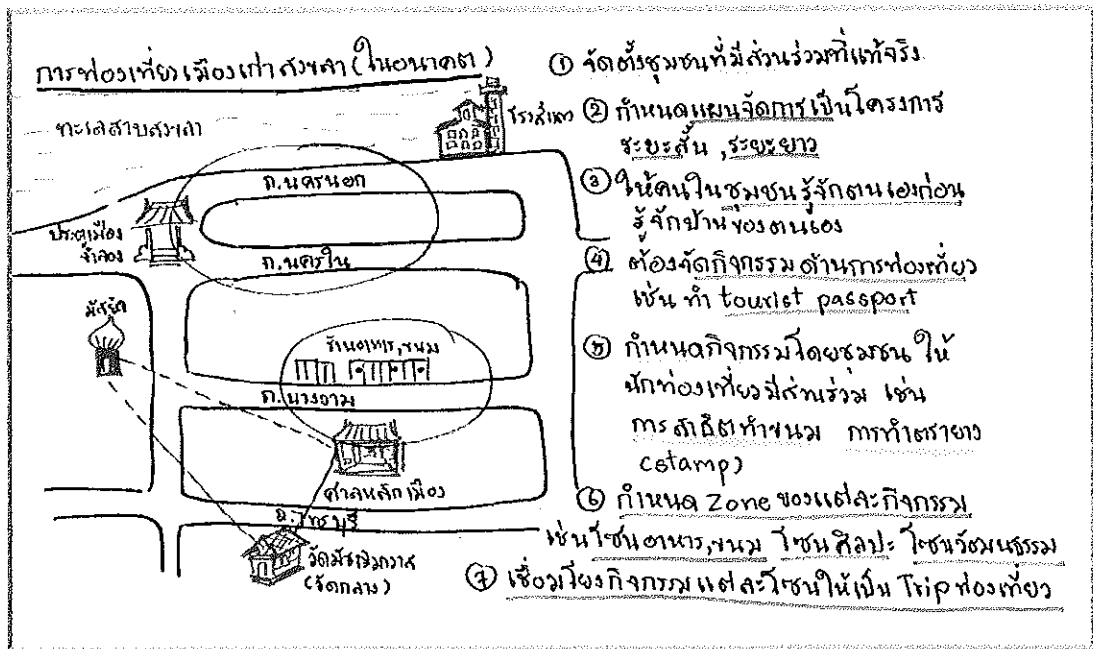 การท่องเที่ยวเมืองเก่าสงขลา (ในอนาคต)
ทะเลสาบสงขลา
โรงสีแดง
ถ.นครนอก
ประตูเมือง
จำลอง
ถ.นครใน
มัสยิด
ร้านอาหาร,ขนม
ถ.นางงาม
ศาลหลักเมือง
ถ.ไทรบุรี
วัดมัชฌิมาวาส
(วัดกลาง)
① จัดตั้งชุมชนที่มีส่วนร่วมที่แท้จริง
② กำหนดแผนจัดการเป็นโครงการ
ระยะสั้น ,ระยะยาว
③ ให้คนในชุมชนรู้จักตนเองก่อน
รู้จักบ้านของตนเอง
④ ต้องจัดกิจกรรมด้านการท่องเที่ยว
เช่น ทำ tourist passport
⑤ กำหนดกิจกรรมโดยชุมชน ให้
นักท่องเที่ยวมีส่วนร่วม เช่น
การสาธิตทำขนม การทำตรายาง
(stamp)
⑥ กำหนด Zone ของแต่ละกิจกรรม
เช่นโซนอาหาร,ขนม โซนศิลปะ โซนวัฒนธรรม
⑦ เชื่อมโยงกิจกรรมแต่ละโซนให้เป็น Trip ท่องเที่ยว